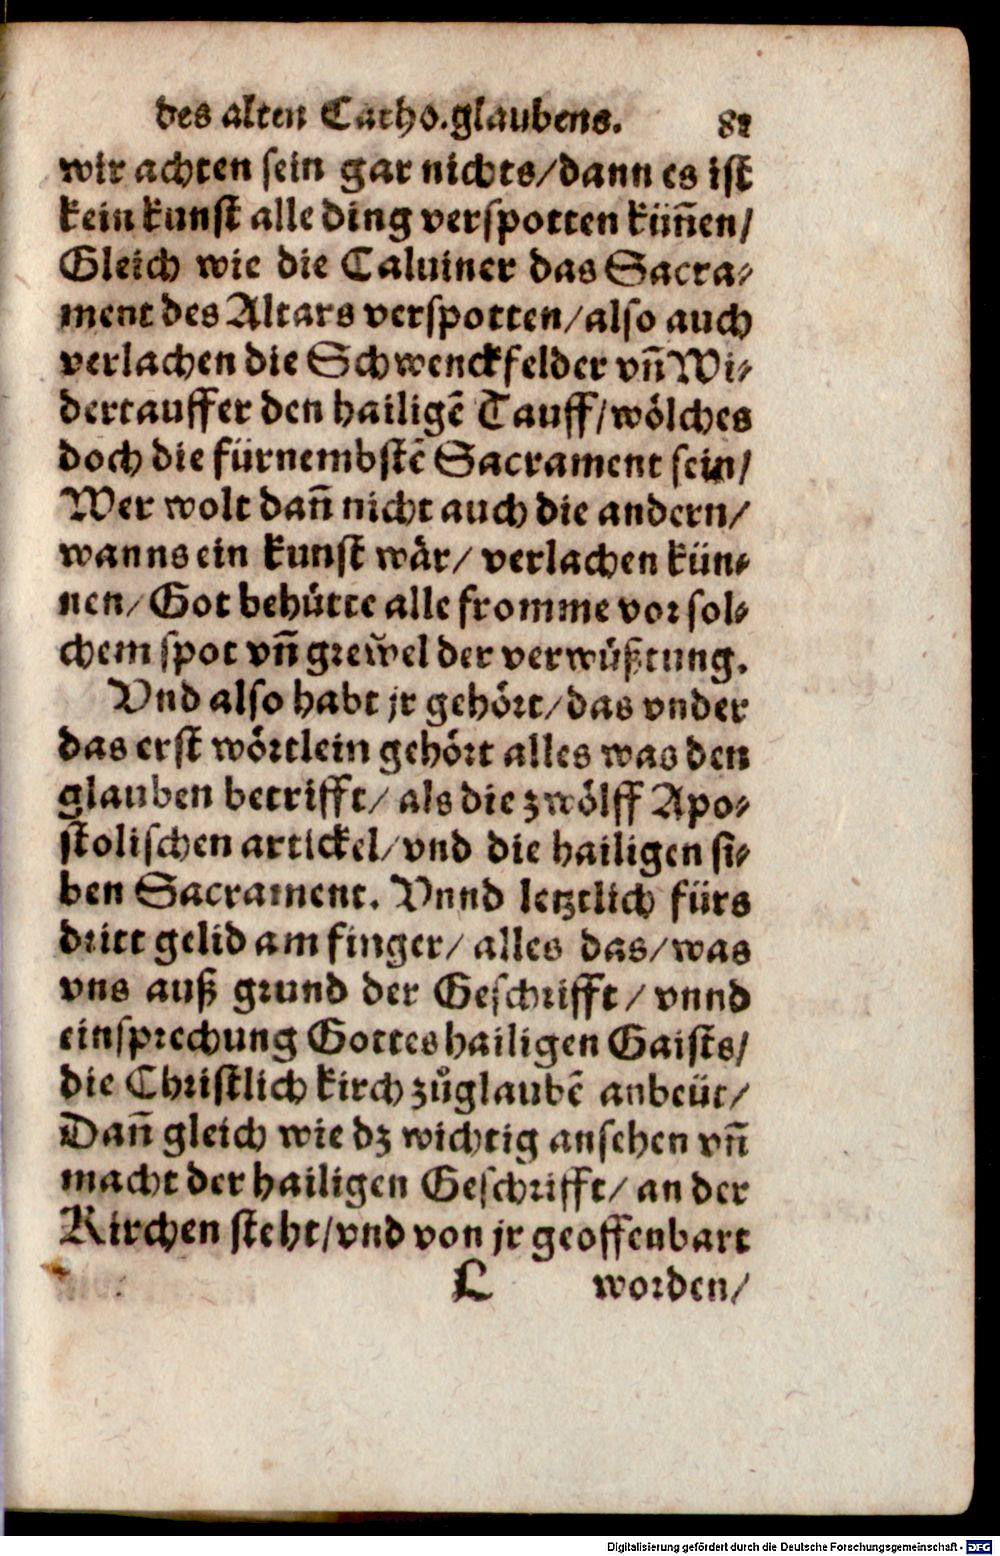 des alten Catho.glaubens. 81
wir achten sein gar nichts/dann es ist
kein kunst alle ding verspotten küñen/
Gleich wie die Caluiner das Sacra-
ment des Altars verspotten/also auch
verlachen die Schwenckfelder vñ Wi-
dertauffer den hailigẽ Tauff/wölches
doch die fürnembstẽ Sacrament sein/
Wer wolt dañ nicht auch die andern/
wanns ein kunst wär/ verlachen kün-
nen/ Got behütte alle fromme vor sol-
chem spot vñ grewel der verwüßtung.
Vnd also habt jr gehört/das vnder
das erst wörtlein gehört alles was den
glauben betrifft/ als die zwölff Apo-
stolischen artickel/vnd die hailigen si-
ben Sacrament. Vnnd letztlich fürs
dritt gelid am finger/ alles das/was
vns auß grund der Geschrifft/ vnnd
einsprechung Gottes hailigen Gaists/
die Christlich kirch zůglaubẽ anbeüt/
Dañ gleich wie dz wichtig ansehen vñ
macht der hailigen Geschrifft/ an der
Kirchen steht/vnd von jr geoffenbart
L worden/
Digitalisierung gefördert durch die Deutsche Forschungsgemeinschaft - DFG